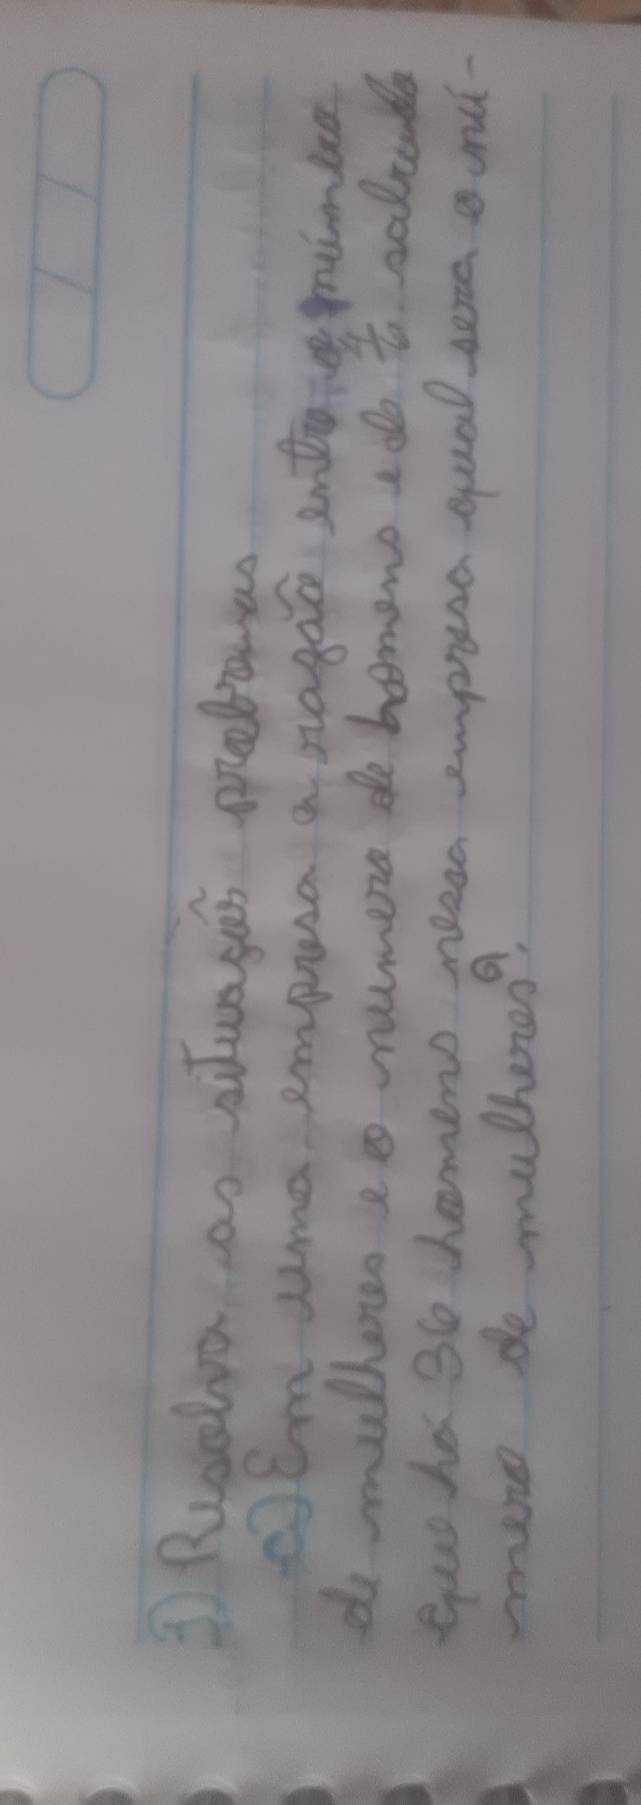 1) Resolva as situações probremas
a) Em uma empresa a razão entre o número
de mulheres e o numero de homens e de 4/6 sabendo
que há 36 homens nessa empresa qual sera o nú-
mero de mulheres?